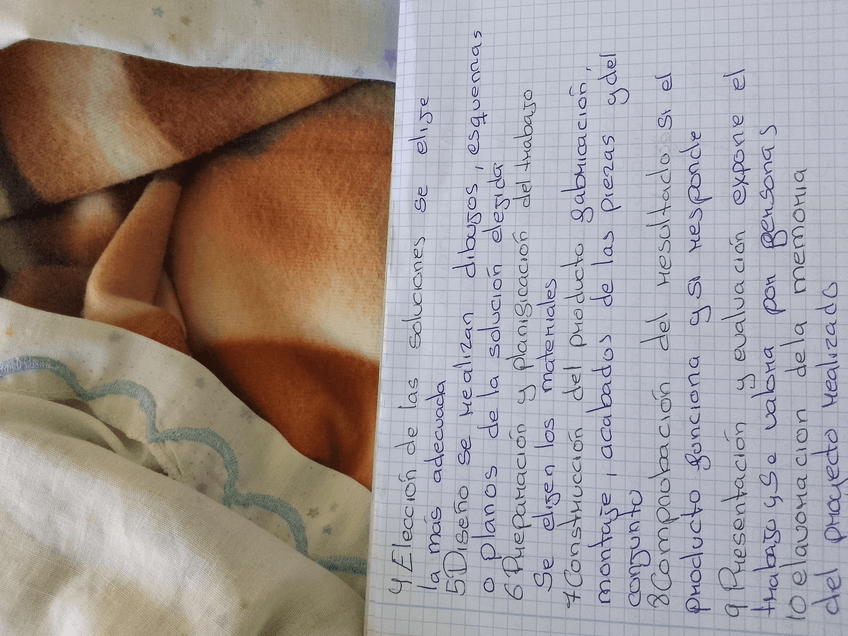 4 Elección de las soluciones se elije
la más adecuada
5 Diseño se realizan dibujos, esquemas
o planos de la solución elejida
6 Preparación y planificación del trabajo
Se elijen los materiales
7 Construcción del producto fabricación,
montaje, acabados de las piezas y del
conjunto
8 Comprobación del resultado si el
producto funciona y si responde
9 Presentación y evaluación expone el
trabajo y se valora por personas
10 elavoracion dela memoria
del proyecto realizado